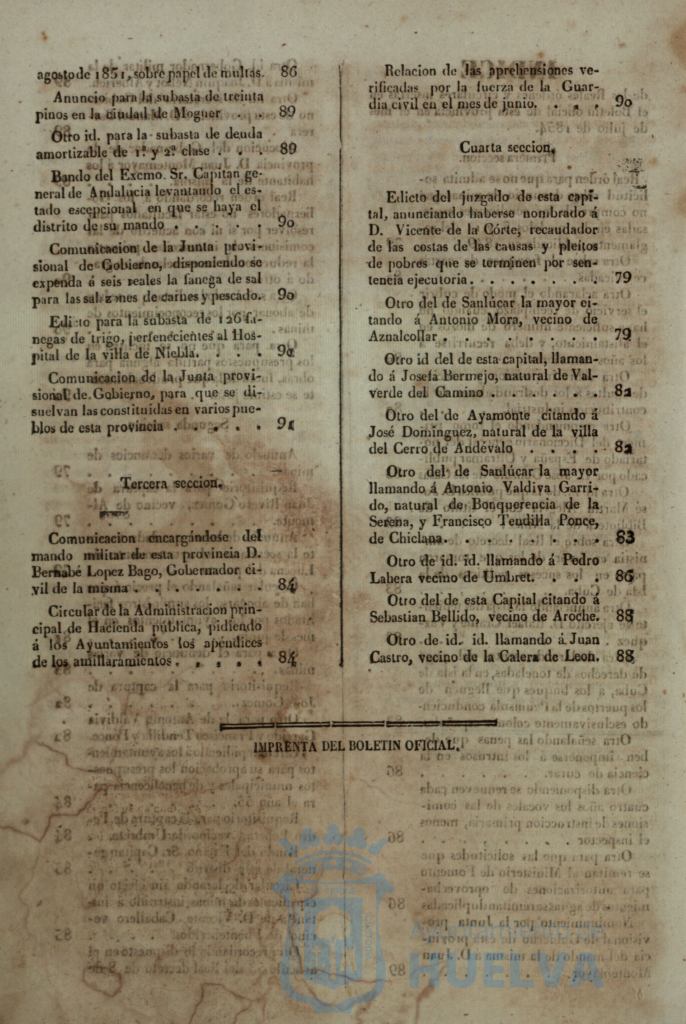 agosto de 1851, sobre papel de multas. 86
Anuncio para la subasta de treinta
pinos en la ciudad de Moguer . . 89
Otro id. para la subasta de deuda
amortizable de 1.ª y 2.ª clase . . . 89
Bando del Excmo. Sr. Capitan ge-
neral de Andalucia levantando el es-
tado escepcional en que se haya el
distrito de su mando . . . . . 90
Comunicacion de la Junta provi-
sional de Gobierno, disponiendo se
expenda á seis reales la fanega de sal
para las salazones de carnes y pescado. 90
Edicto para la subasta de 126 fa-
negas de trigo, pertenecientes al Hos-
pital de la villa de Niebla. . . .
Comunicacion de la Junta provi-
sional de Gobierno, para que se di-
suelvan las constituidas en varios pue-
blos de esta provincia . . . . . 91
Tercera seccion.
Comunicacion encargándose del
mando militar de esta provincia D.
Bernabé Lopez Bago, Gobernador ci-
vil de la misma . . . . . . . 84
Circular de la Administracion prin-
cipal de Hacienda pública, pidiendo
á los Ayuntamientos los apéndices
de los amillaramientos. . . . . 84
Relacion de las aprehensiones ve-
rificadas por la fuerza de la Guar-
dia civil en el mes de junio. . . . 90
Cuarta seccion.
Edicto del juzgado de esta capi-
tal, anunciando haberse nombrado á
D. Vicente de la Córte, recaudador
de las costas de las causas y pleitos
de pobres que se terminen por sen-
tencia ejecutoria. . . . . . . 79
Otro del de Sanlúcar la mayor ci-
tando á Antonio Mora, vecino de
Aznalcollar . . . . . . . . 79
Otro id del de esta capital, llaman-
do á Josefa Bermejo, natural de Val-
verde del Camino . . . . . . 82
Otro del de Ayamonte citando á
José Dominguez, natural de la villa
del Cerro de Andévalo . . . . 82
Otro del de Sanlúcar la mayor
llamando á Antonio Valdiva Garri-
do, natural de Benquerencia de la
Serena, y Francisco Tendilla Ponce,
de Chiclana. . . . . . . . 83
Otro de id. id. llamando á Pedro
Labera vecino de Umbret. . . . 86
Otro del de esta Capital citando á
Sebastian Bellido, vecino de Aroche. 88
Otro de id. id. llamando á Juan
Castro, vecino de la Calera de Leon. 88
IMPRENTA DEL BOLETIN OFICIAL.
HUELVA